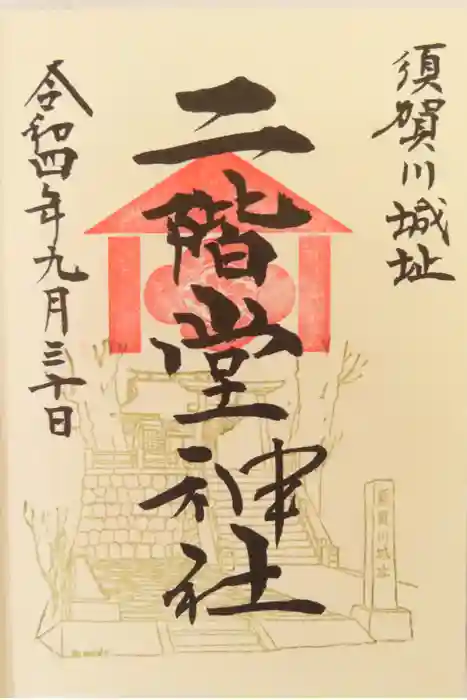 須賀川城址
二階堂神社
令和四年九月三十日
須賀川城址